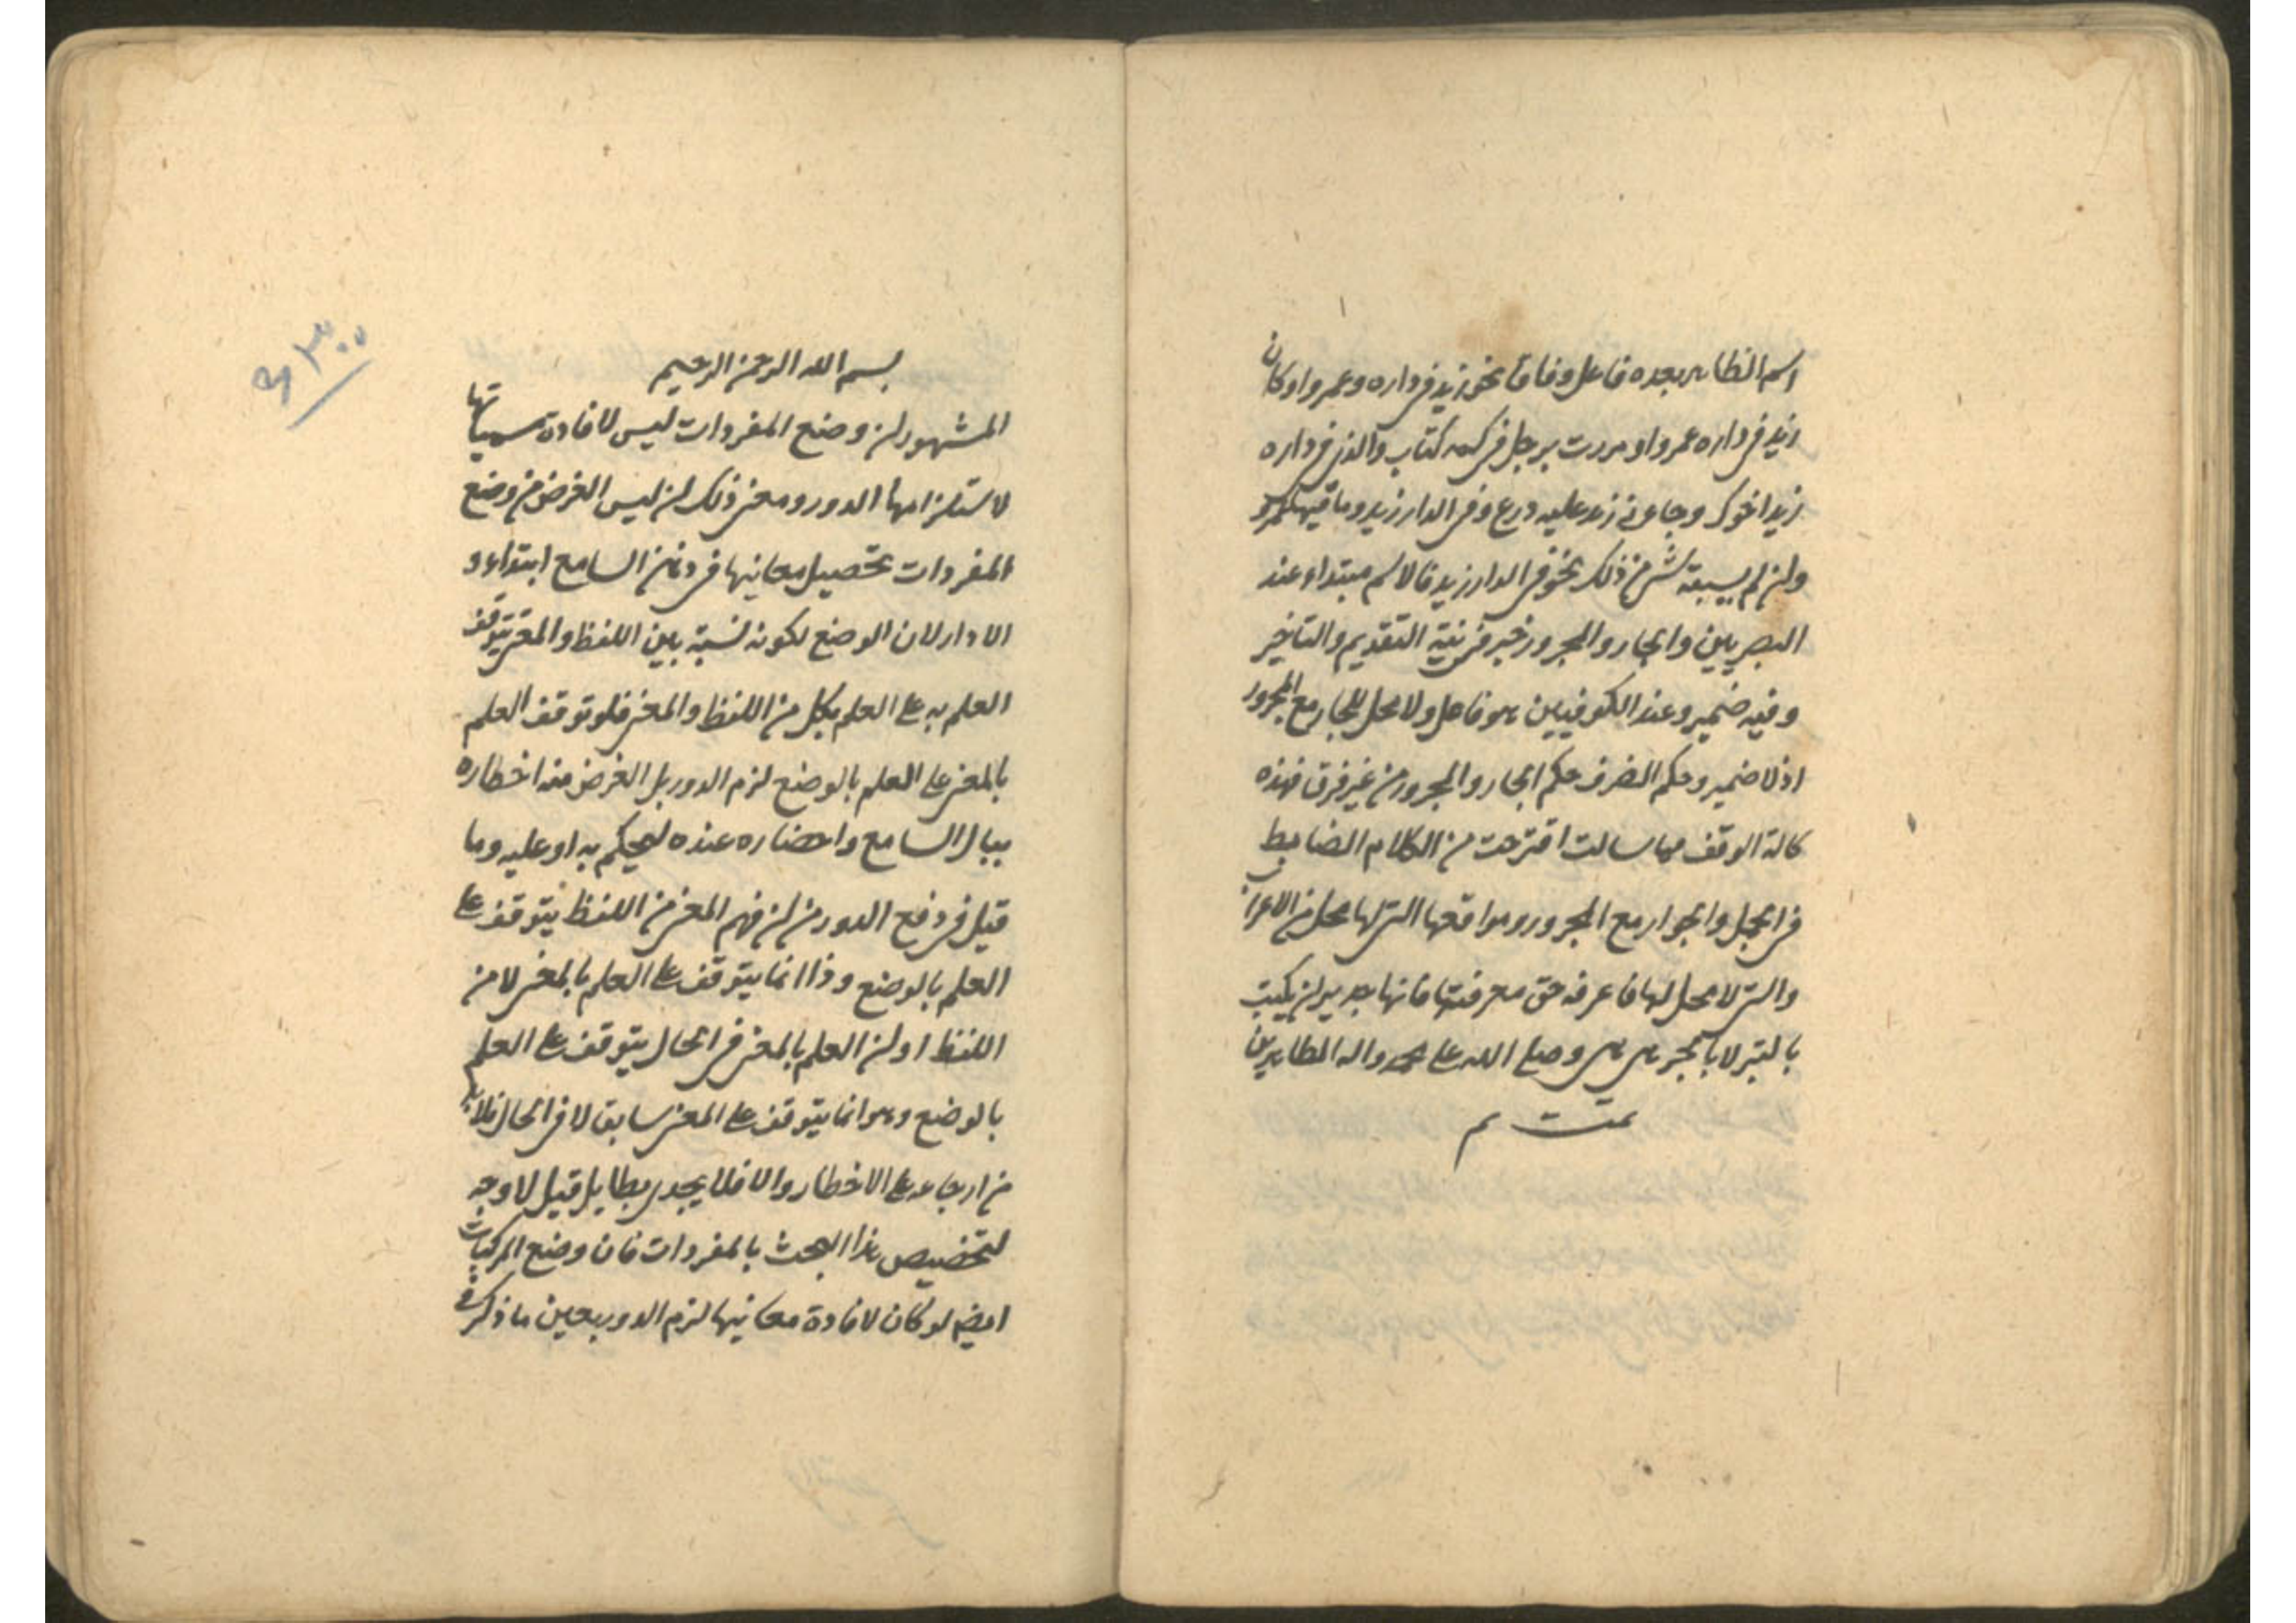 اسم الظاهر بعده فاعل وفاقا نحو زيد في داره وعمرو او كان
زيد في داره عمرو او مررت برجل في كمه كتاب والذي في داره
زيد اخوك وجاءني زيد عليه درع وفي الدار زيد وما فيها عمرو
وان لم يسبقه شئ من ذلك نحو في الدار زيد فالاسم مبتداء عند
البصريين والجار والمجرور خبر في نية التقديم والتاخير
وفيه ضمير وعند الكوفيين هو فاعل ولا محل للجار مع المجرور
اذ لا ضمير وحكم الضرف حكم الجار والمجرور من غير فرق فهذه
كالة الوقف مما سالت اقترحت من الكلام الضابط
في الجمل والجوار مع المجرور ومواقعها التي لها محل من الاعراب
والتي لا محل لها فاعرفه حق معرفتها فانها جدير ان يكتب
بالتبر لا بالحبر وصلى الله على محمد واله الطاهرين
تمت م
۶۳۰۰
بسم الله الرحمن الرحيم
المشهور ان وضع المفردات ليس لافادة مسمياتها
لاستلزامها الدور ومعنى ذلك ان ليس الغرض من وضع
المفردات تحصيل معانيها في ذهن السامع ابتداء و
الا دار لان الوضع لكونه نسبة بين اللفظ والمعنى يتوقف
العلم به على العلم بكل من اللفظ والمعنى فلو توقف العلم
بالمعنى على العلم بالوضع لزم الدور بل الغرض منه اخطاره
ببال السامع واحضاره عنده ليحكم به او عليه وما
قيل في دفع الدور من ان فهم المعنى من اللفظ يتوقف على
العلم بالوضع وذا انما يتوقف على العلم بالمعنى لا من
اللفظ او ان العلم بالمعنى في الحال يتوقف على العلم
بالوضع وهو انما يتوقف على المعنى سابق لا في الحال فلا بد
من ارجاعه على الاخطار والا فلا يجدى بطايل قيل لا وجه
لتخصيص هذا البحث بالمفردات فان وضع المركبات
ايضا لو كان لافادة معانيها لزم الدور بعين ما ذكر في